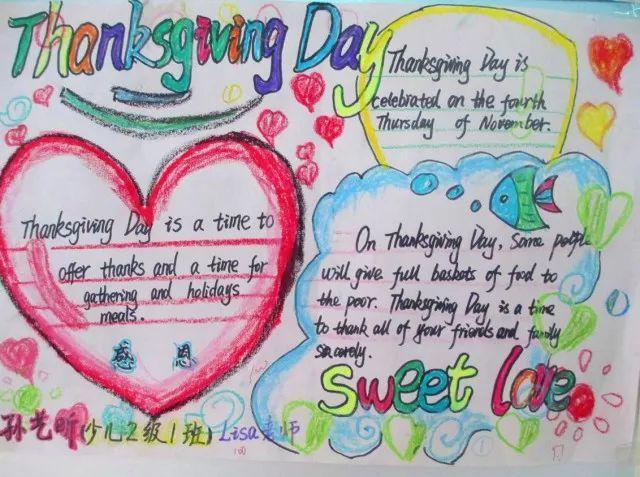 Thanksgiving Day
Thanksgiving Day is
celebrated on the fourth
Thursday of November.
Thanksgiving Day is a time to
offer thanks and a time for
gathering and holidays
meals.
感恩
On Thanksgiving Day, some people
will give full baskets of food to
the poor. Thanksgiving Day is a time
to thank all of your friends and family
sincerely.
sweet love
孙艺昕(少儿2级1班) Lisa老师